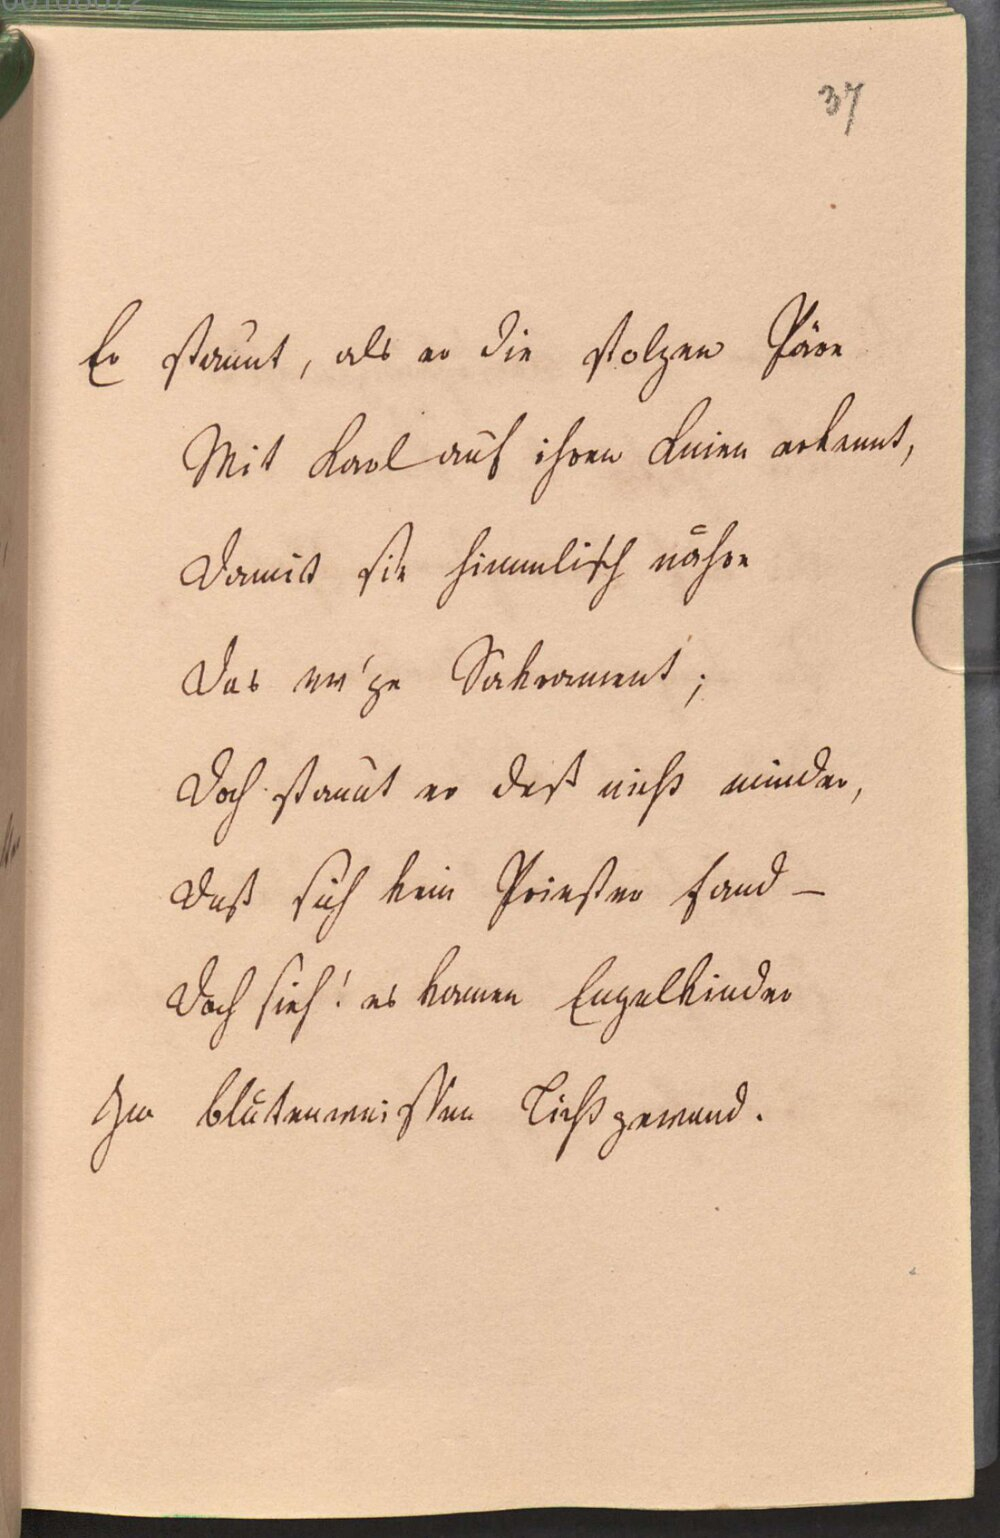 37
Er staunt, als er die stolzen Päre
Mit Karl auf ihren Knien erkennt,
Damit sie himmlisch nähre
Das ew'ge Sakrament;
Doch staunt er deß nicht minder,
Daß sich kein Priester fand –
Doch sieh! es kamen Engelkinder
Im blütenweissen Lichtgewand.